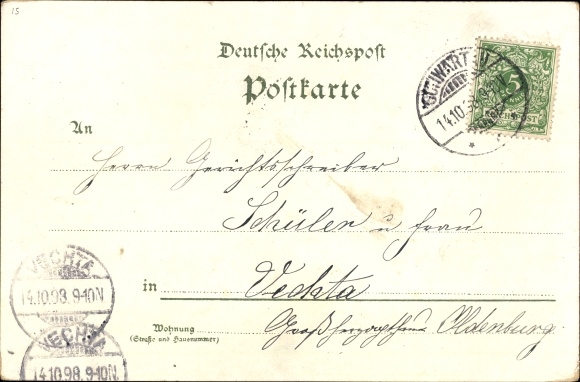 15
Deutsche Reichspost
Postkarte
SCHWARTAU
14.10.
5
An
Herrn Gerichtsschreiber
Schüler u Frau
in Vechta
Wohnung
(Straße und Hausnummer)
Großherzogthum Oldenburg
VECHTA
14.10.98. 9-10N
VECHTA
14.10.98. 9-10N.